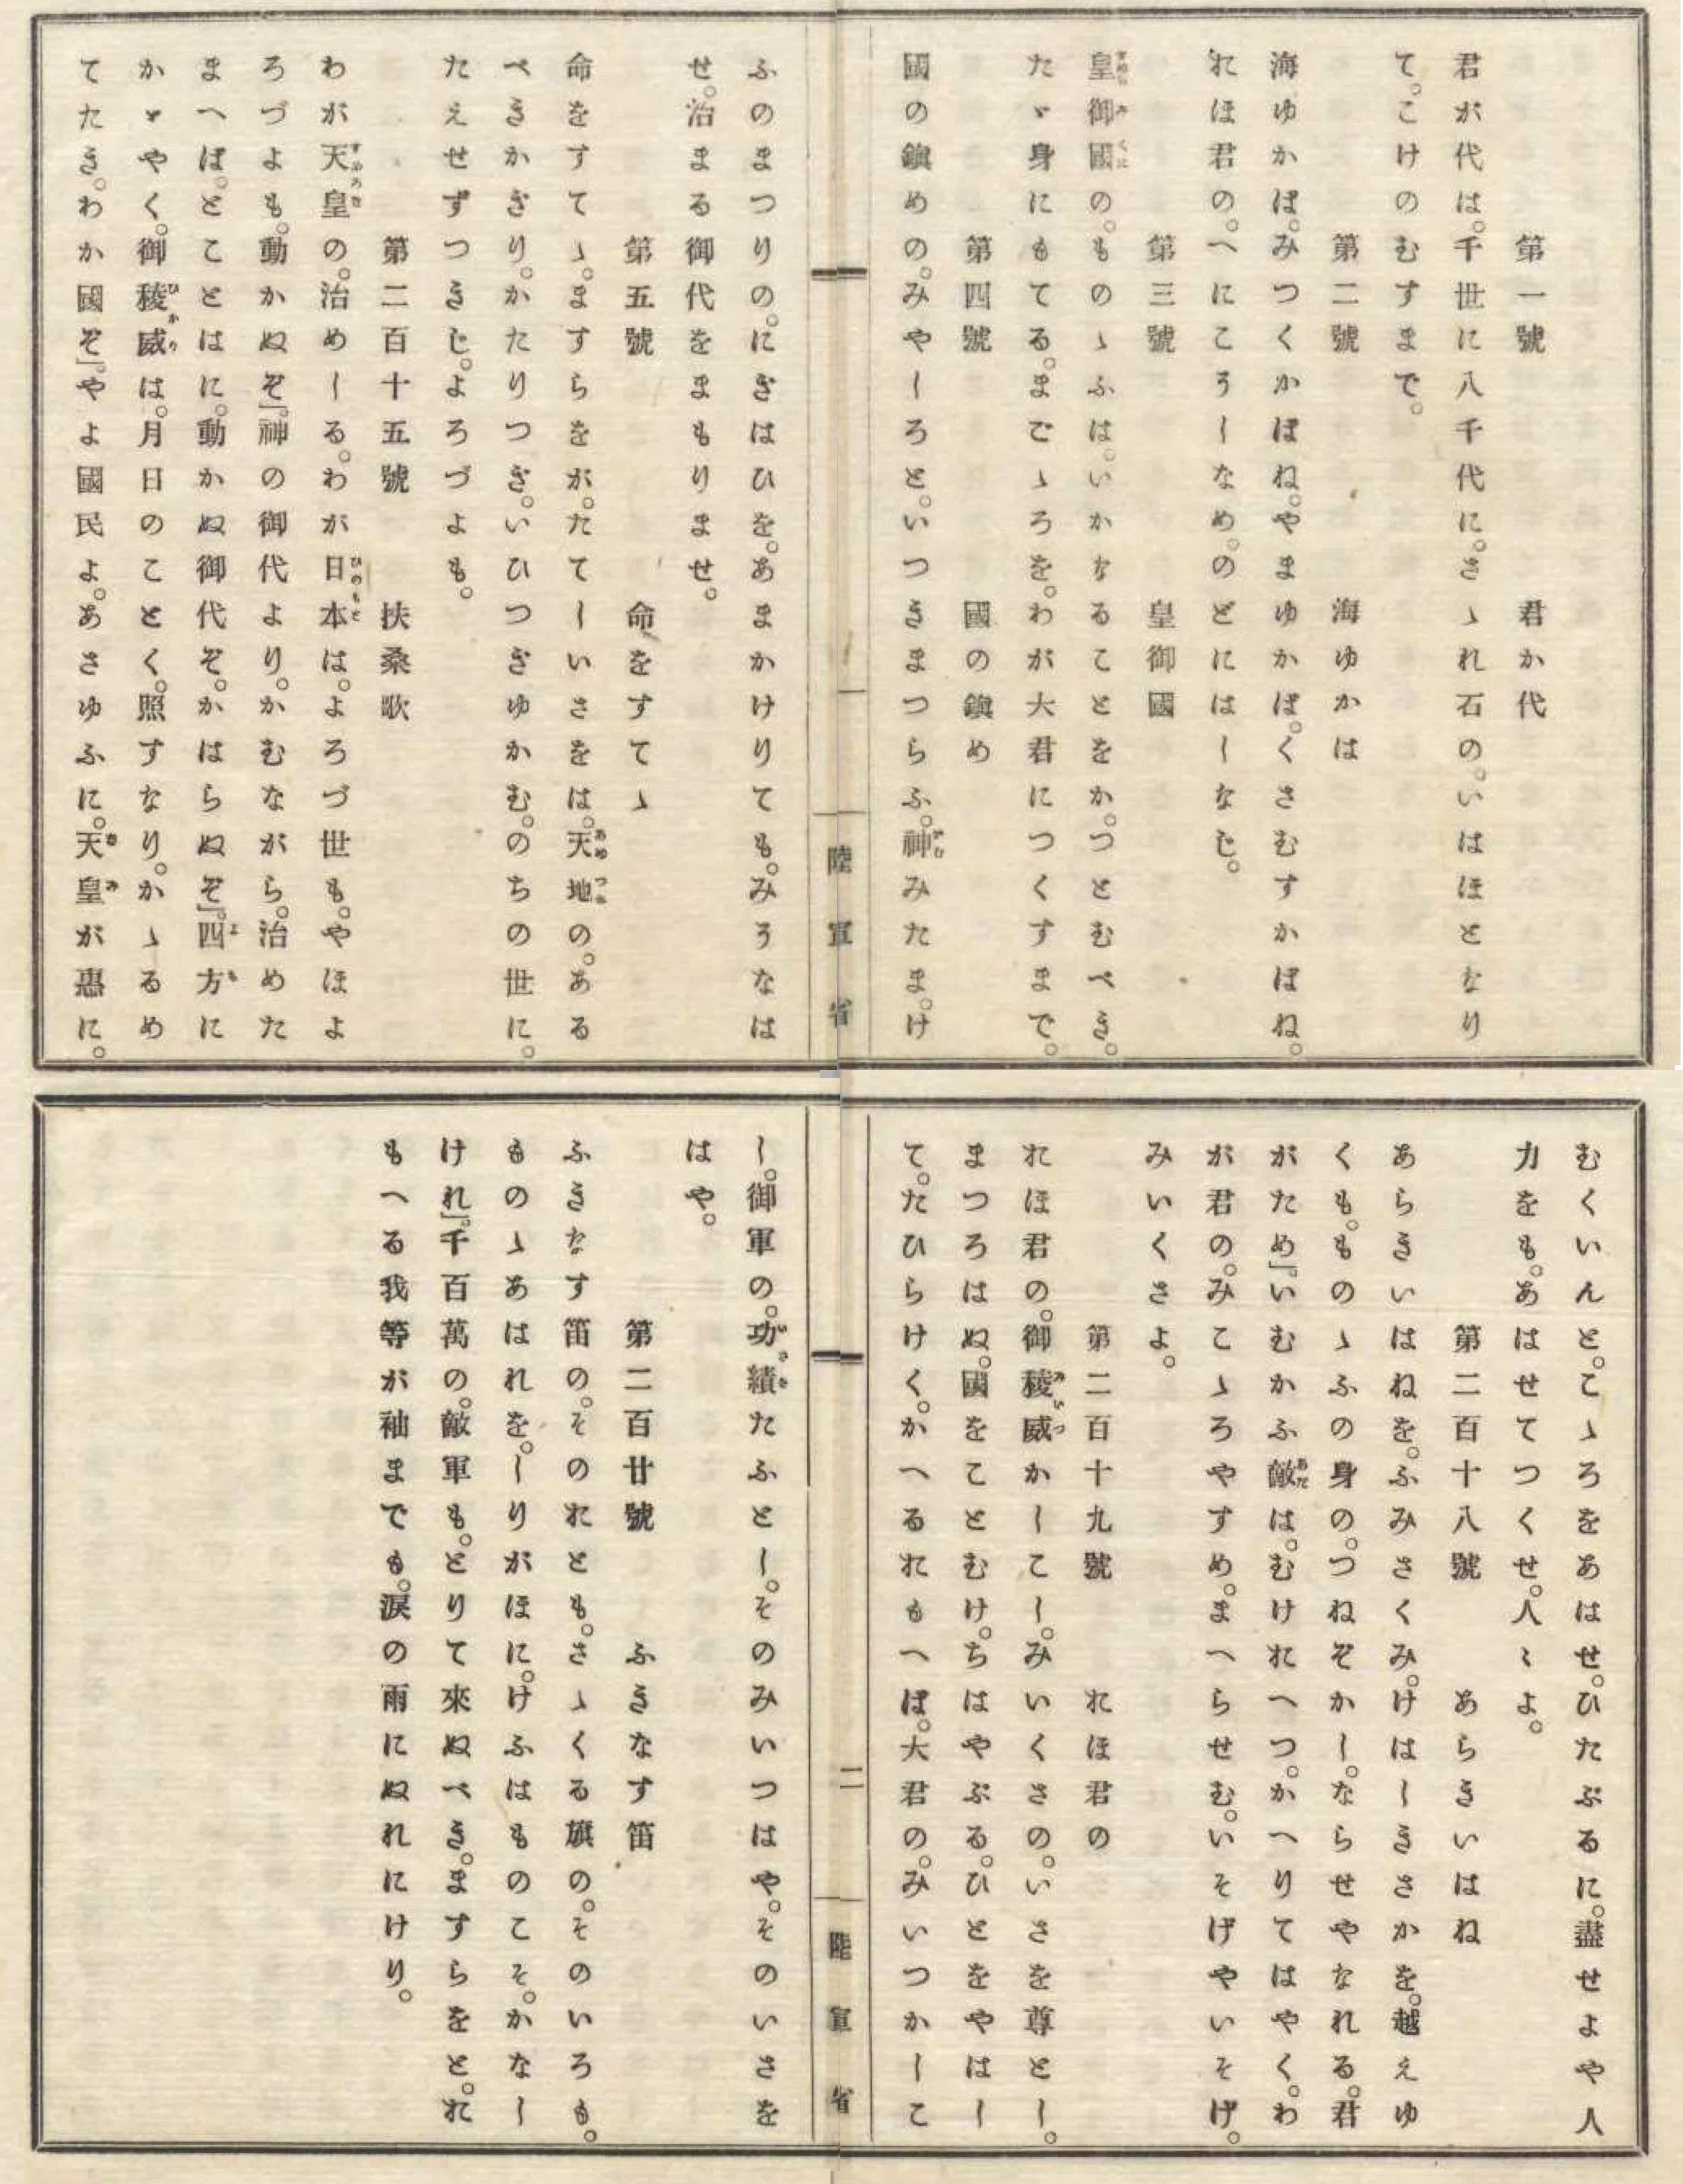 第一號　君か代
君が代は。千世に八千代に。さゝれ石の。いはほとなり
て。こけのむすまで。
第二號　海ゆかは
海ゆかば。みつくかばね。やまゆかば。くさむすかばね。
おほ君の。へにこそしなめ。のどにはしなじ。
第三號　皇御國
皇御國の。ものゝふは。いかなることをか。つとむべき。
たゞ身にもてる。まごゝろを。わが大君につくすまで。
第四號　國の鎭め
國の鎭めの。みやしろと。いつきまつらふ。神みたま。け
一　陸軍省
ふのまつりの。にぎはひを。あまかけりても。みそなは
せ。治まる御代をまもりませ。
第五號　命をすてゝ
命をすてゝ。ますらをが。たてしいさをは。天地の。ある
べきかぎり。かたりつぎ。いひつぎゆかむ。のちの世に。
たえせずつきじ。よろづよも。
第二百十五號　扶桑歌
わが天皇の。治めしる。わが日本は。よろづ世も。やほよ
ろづよも。動かぬぞ』。神の御代より。かむながら。治めた
まへば。とことはに。動かぬ御代ぞ。かはらぬぞ』。四方に
かゞやく。御稜威は。月日のことく。照すなり。かゝるめ
てたき。わか國ぞ』。やよ國民よ。あさゆふに。天皇が惠に。
むくいんと。こゝろをあはせ。ひたぶるに。盡せよや人
力をも。あはせてつくせ。人〻よ。
第二百十八號　あらきいはね
あらきいはねを。ふみさくみ。けはしきさかを。越えゆ
くも。ものゝふの身の。つねぞかし。ならせやなれる。君
がため』。いむかふ敵は。むけおへつ。かへりてはやく。わ
が君の。みこゝろやすめ。まへらせむ。いそげやいそげ。
みいくさよ。
第二百十九號　おほ君の
おほ君の。御稜威かしこし。みいくさの。いさを尊とし。
まつろはぬ。國をことむけ。ちはやぶる。ひとをやはし
て。たひらけく。かへるおもへば。大君の。みいつかしこ
二　陸軍省
し。御軍の。功績たふとし。そのみいつはや。そのいさを
はや。
第二百廿號　ふきなす笛
ふきなす笛の。そのおとも。さゝくる旗の。そのいろも。
ものゝあはれを。しりがほに。けふはものこそ。かなし
けれ』。千百萬の。敵軍も。とりて來ぬべき。ますらをと。お
もへる我等が袖までも。涙の雨にぬれにけり。